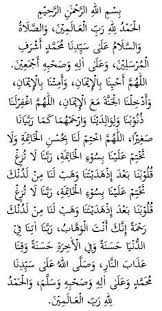 بِسْمِ اللَّهِ الرَّحْمَنِ الرَّحِيْمِ
الْحَمْدُ لِلَّهِ رَبِّ الْعَالَمِيْنَ، وَالصَّلَاةُ
وَالسَّلَامُ عَلَى سَيِّدِنَا مُحَمَّدٍ أَشْرَفِ
الْمُرْسَلِيْنَ، وَعَلَى آلِهِ وَصَحْبِهِ أَجْمَعِيْنَ.
اللَّهُمَّ أَحْيِنَا بِالْإِيْمَانِ، وَأَمِتْنَا بِالْإِيْمَانِ،
وَأَدْخِلْنَا الْجَنَّةَ مَعَ الْإِيْمَانِ. اللَّهُمَّ اغْفِرْلَنَا
ذُنُوْبَنَا وَلِوَالِدَيْنَا وَارْحَمْهُمَا كَمَا رَبَّيَانَا
صِغَارًا. اللَّهُمَّ اخْتِمْ لَنَا بِحُسْنِ الْخَاتِمَةِ وَلَا
تَخْتِمْ عَلَيْنَا بِسُوْءِ الْخَاتِمَةِ. رَبَّنَا لَا تُزِغْ
قُلُوْبَنَا بَعْدَ إِذْهَدَيْتَنَا وَهَبْ لَنَا مِنْ لَدُنْكَ
تَخْتِمْ عَلَيْنَا بِسُوْءِ الْخَاتِمَةِ. رَبَّنَا لَا تُزِغْ
قُلُوْبَنَا بَعْدَ إِذْهَدَيْتَنَا وَهَبْ لَنَا مِنْ لَدُنْكَ
رَحْمَةً إِنَّكَ أَنْتَ الْوَهَّابُ. رَبَّنَا آتِنَا فِي
الدُّنْيَا حَسَنَةً وَفِي الْآخِرَةِ حَسَنَةً وَقِنَا
عَذَابَ النَّارِ. وَصَلَّى اللَّهُ عَلَى سَيِّدِنَا
مُحَمَّدٍ وَعَلَى آلِهِ وَصَحْبِهِ وَسَلَّمَ، وَالْحَمْدُ
لِلَّهِ رَبِّ الْعَالَمِيْنَ.